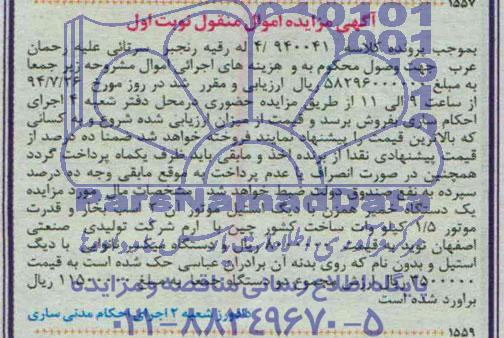 ۱۵۵۷
آگهی مزایده اموال منقول نوبت اول
بموجب پرونده کلاسه ۹۴۰۰۴۱/۴ له رقیه رنجبر سرتائی علیه رحمان
عرب جهت وصول محکوم به و هزینه های اجرائی اموال مشروحه زیر جمعا
به مبلغ ریال ارزیابی و مقرر شد در روز مورخ ۹۴/۷/۲۶
از ساعت ۹ الی ۱۱ از طریق مزایده حضوری درمحل دفتر شعبه ۴ اجرای
احکام ساری بفروش برسد و قیمت از میزان ارزیابی شده شروع و به کسانی
که بالاترین قیمت را پیشنهاد نمایند فروخته خواهد شد ضمنا ده درصد از
قیمت پیشنهادی نقدا از برنده اخذ و مابقی باید ظرف یکماه پرداخت گردد
همچنین در صورت انصراف یا عدم پرداخت به موقع مابقی وجه ده درصد
سپرده به نفع صندوق دولت ضبط خواهد شد مشخصات مال مورد مزایده
یک دستگاه خمیر همزن با دیگ استیل موتور آن اسب بخار و قدرت
موتور ۱/۵ کیلو وات ساخت کشور چین با آرم شرکت تولیدی صنعتی
اصفهان نوید به قیمت ریال دستگاه میکسر نانوایی با دیگ
استیل و بدون نام که روی بدنه آن برادران عباسی حک شده است به قیمت
ریال مجموع دو دستگاه جمعا به مبلغ ریال
برآورد شده است
دادورز شعبه ۲ اجرای احکام مدنی ساری
۱۵۵۹
ParsNamadData
پایگاه اطلاع رسانی مناقصه و مزایده
۰۲۱-۸۸۳۴۹۶۷۰-۵